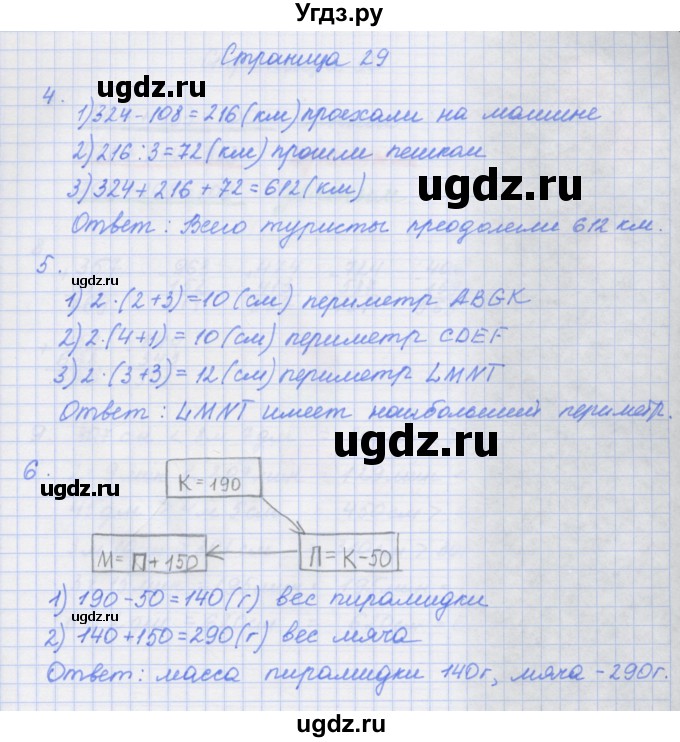 Угдз.ру
Страница 29
4.
1) 324 - 108 = 216 (км) проехали на машине
ugdz.ru
2) 216 : 3 = 72 (км) прошли пешком
ugdz.ru
3) 324 + 216 + 72 = 612 (км)
Ответ: Всего туристы преодолели 612 км.
5.
ugdz.ru
1) 2 · (2+3) = 10 (см) периметр ABGK
2) 2 · (4+1) = 10 (см) периметр CDEF
3) 2 · (3+3) = 12 (см) периметр LMNT
Ответ: LMNT имеет наибольший периметр.
ugdz.ru
6.
ugdz.ru
К = 190
М = П + 150
П = К - 50
1) 190 - 50 = 140 (г) вес пирамидки
2) 140 + 150 = 290 (г) вес мяча
ugdz.ru
Ответ: масса пирамидки 140 г, мяча - 290 г.
ugdz.ru